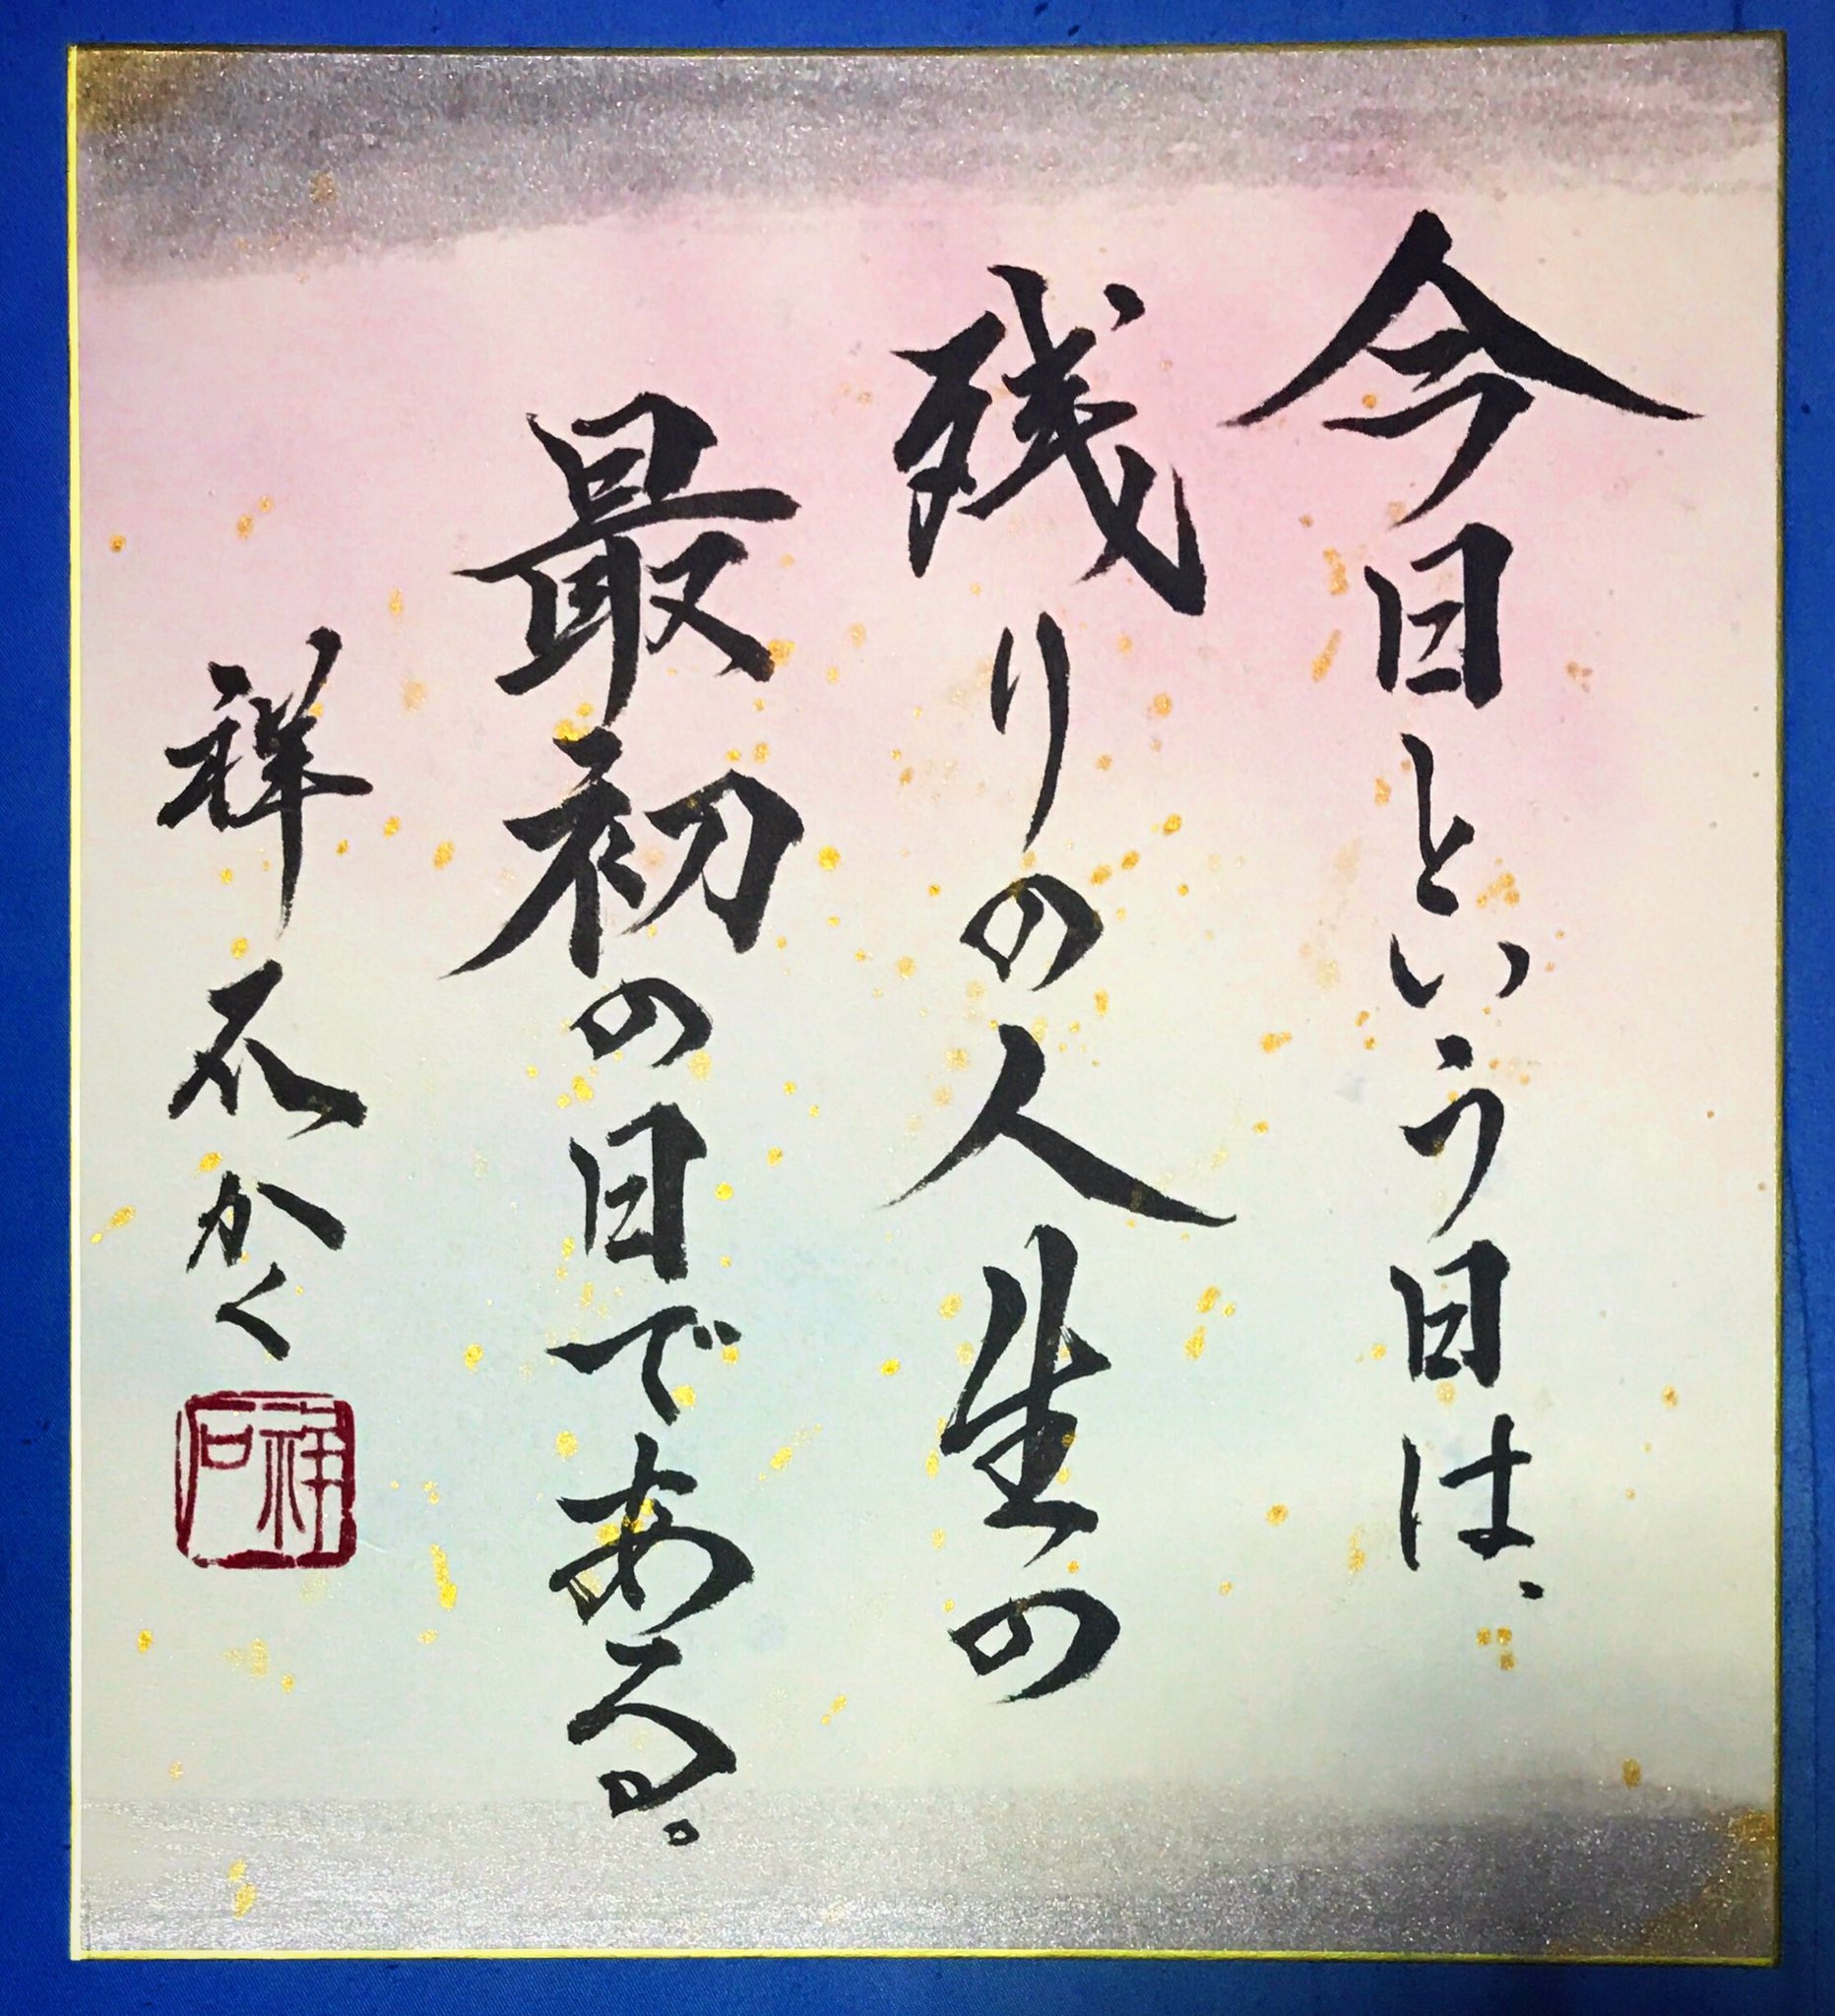 今日という日は、
残りの人生の
最初の日である。
祥石かく
祥石